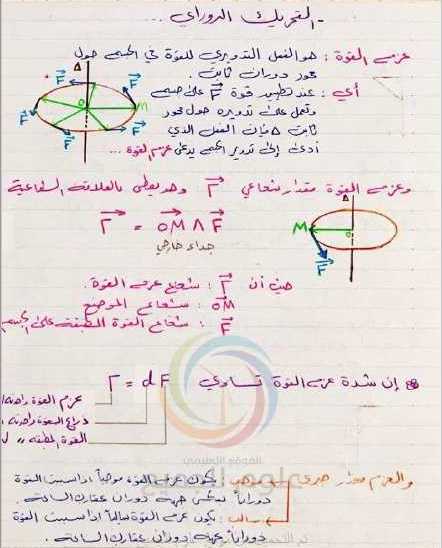 - التحريك الدوراني ...
عزم القوة : هو الفعل التدويري للقوة في الجسم حول
محور دوران ثابت .
أي : عند تطبيق قوة F على جسم
وتعمل على تدويره حول محور
ثابت Δ فإن الفعل الذي
أدى إلى تدوير الجسم يدعى عزم القوة ...
وعزم القوة مقدار شعاعي Γ وهو يعطى بالعلاقة الشعاعية
Γ = OM ∧ F
جداء خارجي
حيث أن Γ : شعاع عزم القوة .
OM : شعاع الموضع
F : شعاع القوة المطبقة على الجسم
إن شدة عزم القوة تساوي Γ = d F
عزم القوة واحدته
ذراع القوة واحدته
القوة المطبقة
والعزم مقدار جبري
موجب : يكون عزم القوة موجباً إذا سببت القوة
دوراناً بعكس جهة دوران عقارب الساعة .
سالب : يكون عزم القوة سالباً إذا سببت القوة
دوراناً بجهة دوران عقارب الساعة .
الموقع التعليمي
علوم للجميع
Δ
F
F
F
F
F
O
M
Δ
M
O
F